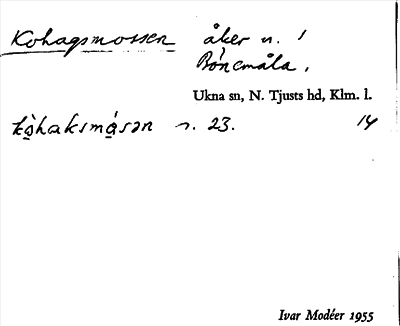 Kohagsmossen åker n. 1
Bönemåla.
Ukna sn, N. Tjusts hd, Klm. l.
kòhaksmå̀sən n. 23. 14
Ivar Modéer 1955